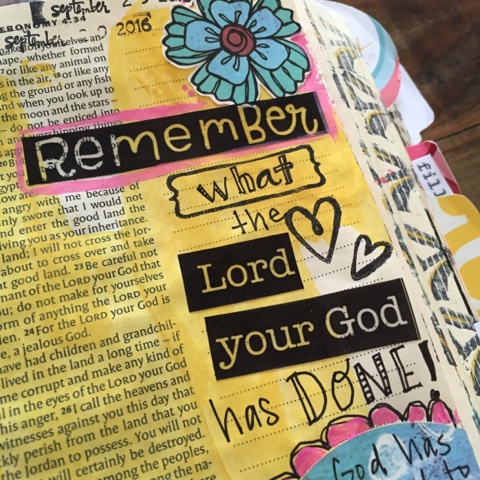 september
ERONOMY 4:34
september 2016
Remember
what
the
Lord
your God
has DONE!
God has
to
fil
make for yourselves an
ape, whether formed
or like any animal on
s in the air, 18 or like any
ng the ground or any fish
and when you look up to
the moon and the stars
do not be enticed into
angry with me because of
nly swore that I would not
nd enter the good land the
iving you as your inheritance.
land; I will not cross the Jor-
about to cross over and take
at good land. 23 Be careful not
nant of the LORD your God that
ou; do not make for yourselves
orm of anything the LORD your
den. 24 For the LORD your God is
e, a jealous God.
have had children and grandchil-
lived in the land a long time – if
me corrupt and make any kind of
il in the eyes of the LORD your God
his anger, 26 I call the heavens and
witnesses against you this day that
ckly perish from the land that you
the Jordan to possess. You will not
will certainly be destroyed.
among the peoples,
among the na-